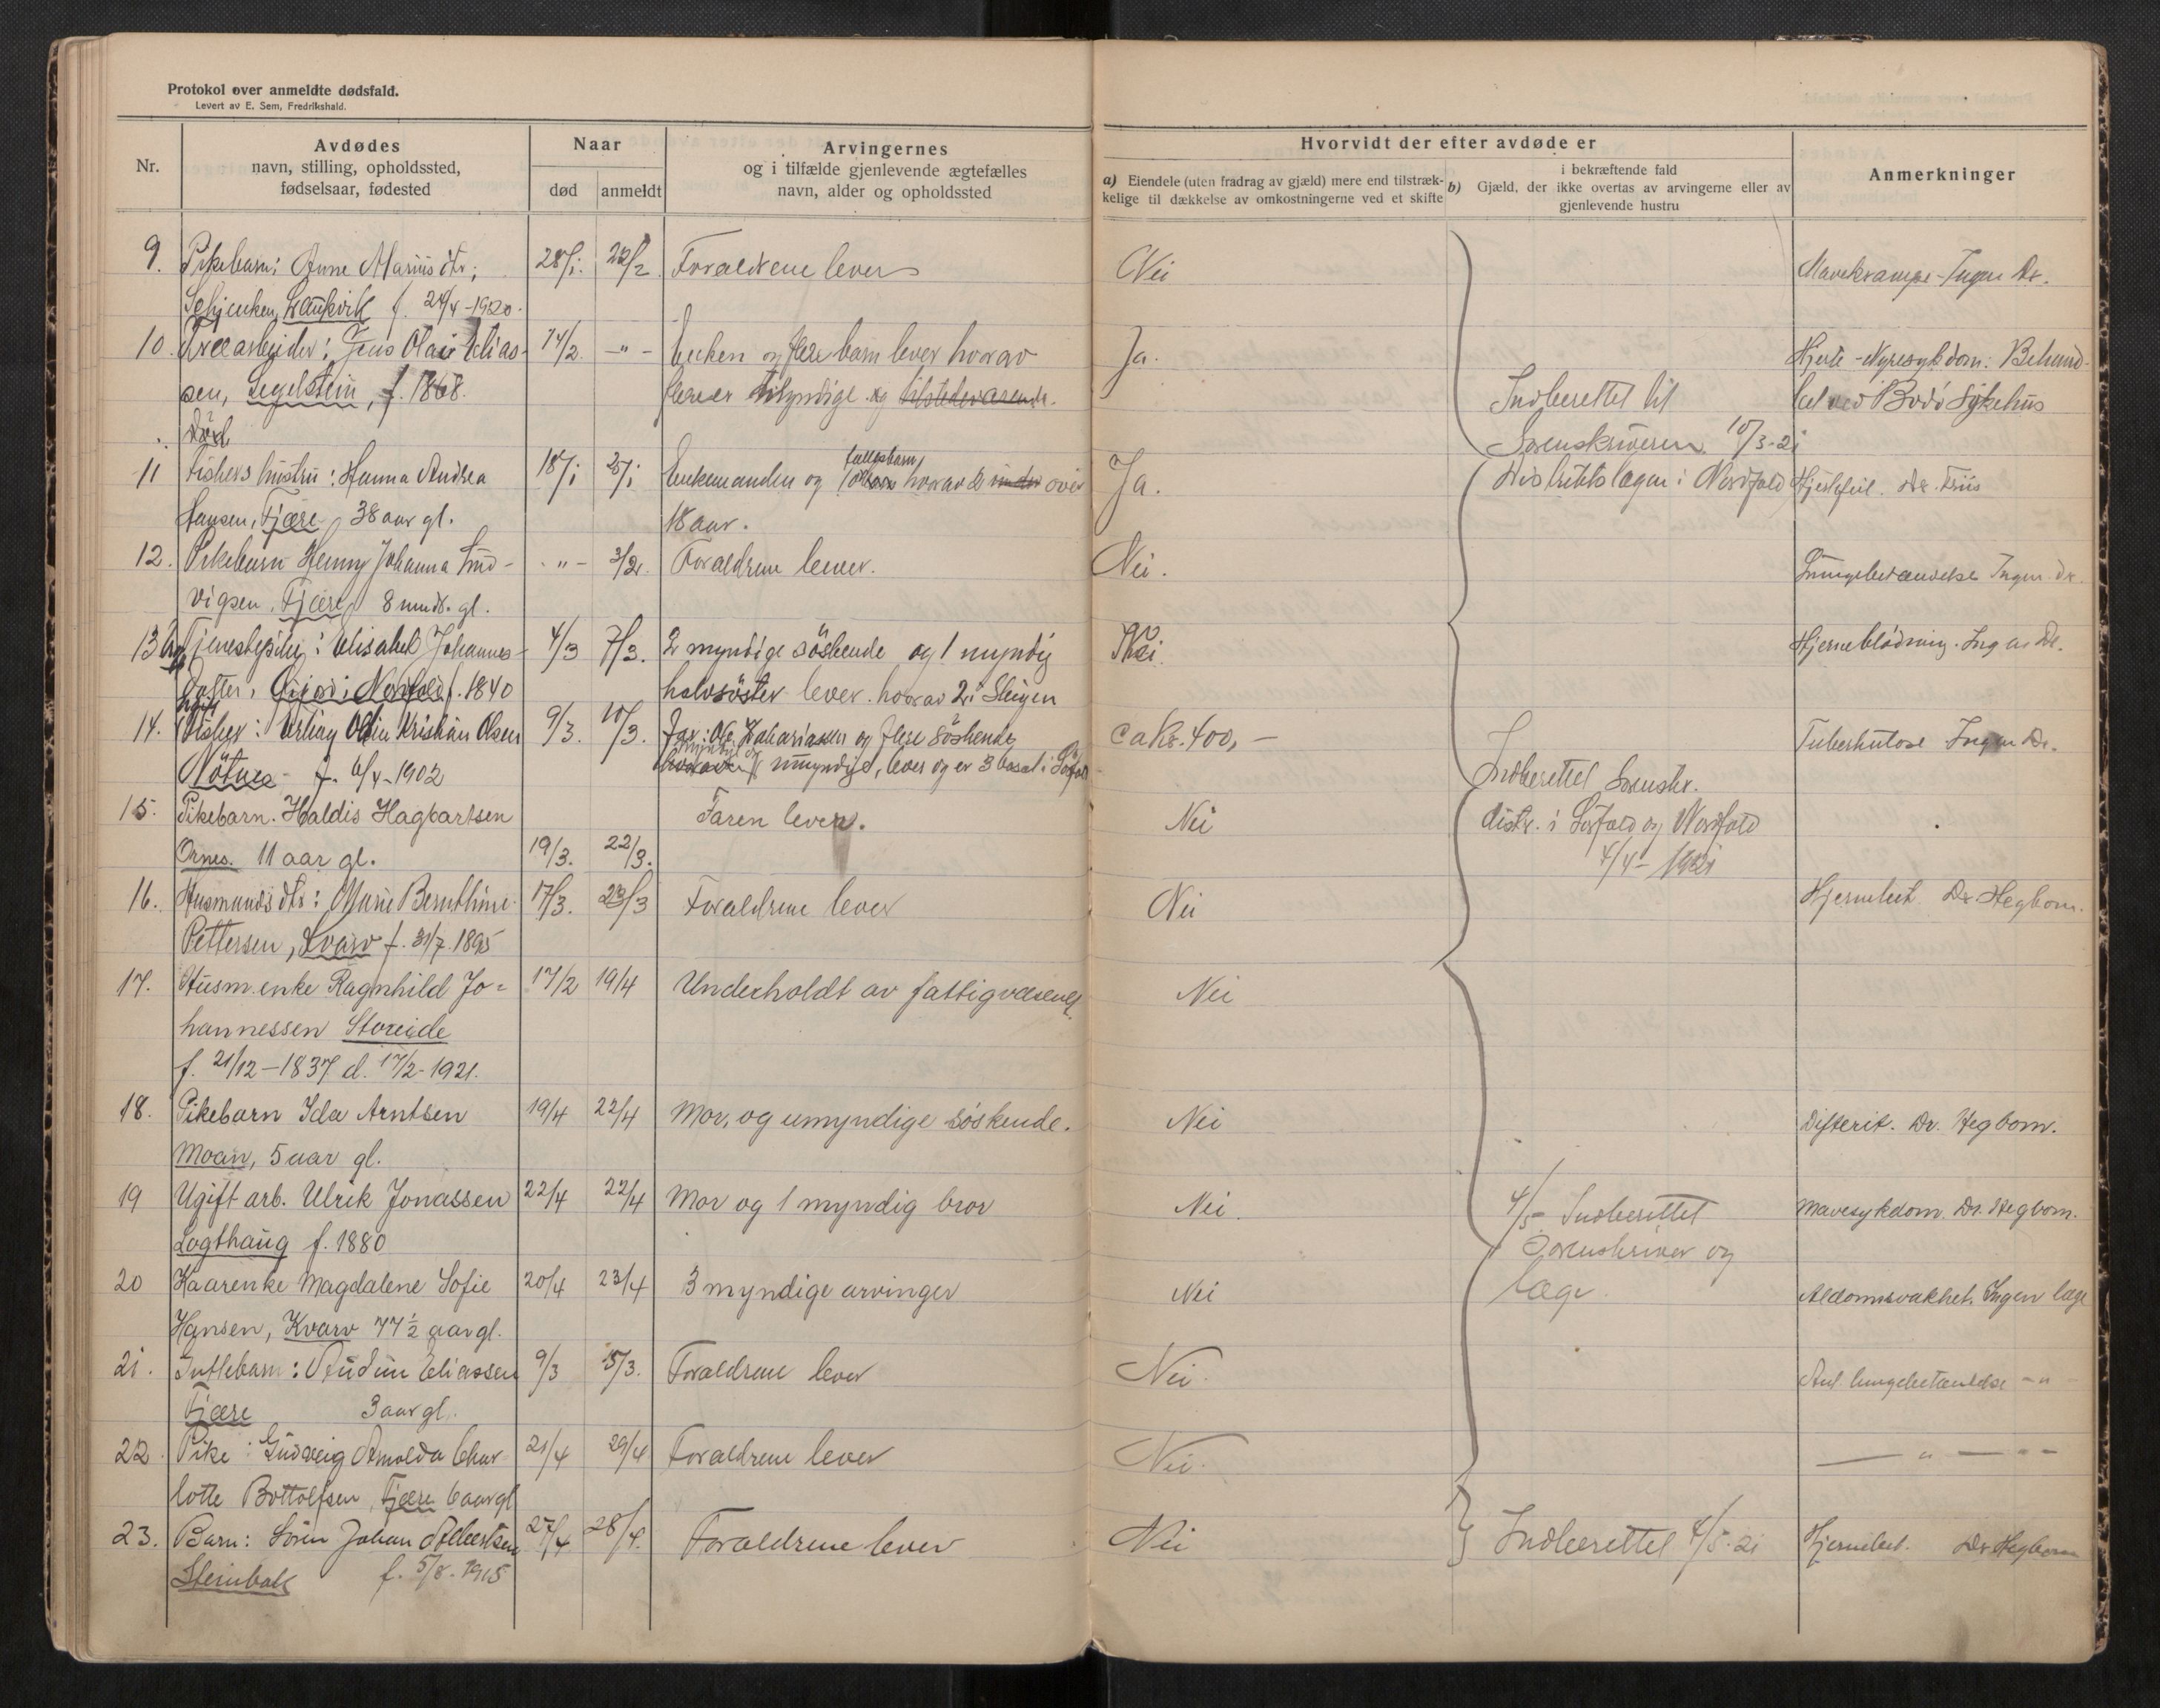 Protokol over anmeldte dødsfald.
Levert av E. Sem, Fredrikshald.
Nr.
Avdødes
navn, stilling, opholdssted,
fødselsaar, fødested
Naar
død anmeldt
Arvingernes
og i tilfælde gjenlevende ægtefælles
navn, alder og opholdssted
Hvorvidt der efter avdøde er
a) Eiendele (uten fradrag av gjæld) mere end tilstræk-
kelige til dækkelse av omkostningerne ved et skifte
i bekræftende fald
b) Gjæld, der ikke overtas av arvingerne eller av
gjenlevende hustru
Anmerkninger
9. Pikebarn: Anne Mariusdtr; 28/1. 22/2 Forældrene lever Nei Mavekrampe - Ingen Dr.
f. 24/4-1920.
10. Jens Olai Elias- 14/2. -"- Enken og flere barn lever hvorav Ja. Hjerte-Nyresykdom: Behand-
sen, Segelstein, f. 1868. flere er umyndige og tilstedeværende. let ved Bodö Sykehus
Indberettet til
Sorenskriveren 10/3-21
11 Fiskers hustru: Hanna Andrea 18/1 2/1 Enkemanden og fællesbarn, hvorav 2 under over Ja. Distriktslægen i Nordfold Hjertefeil. Dr. Friis
Hansen, Fjære, 38 aar gl. 18 aar.
12. Pikebarn Henny Johanna Lud- -"- 3/2. Forældrene lever. Nei. Lungebetændelse Ingen Dr.
vigsen, Fjære 8 mndr. gl.
13 Tjenestepike: Elisabet Johannes- 4/3 7/3. 2 myndige söskende og 1 myndig Nei. Hjerneblödning. Ingen Dr.
datter, i Nordfold f. 1840 halvsöster lever. hvorav 2 i Steigen
14. Fisker: Erling Olai Kristian Olsen 9/3. 10/3. Far: Ole Zakariassen og flere söskende Ca Kr. 400,- Tuberkulose Ingen Dr.
Nötnes - f. 6/4-1902 umyndige, lever og er 3 bosat i Sörfold
Indberettet Sorenskr.
15. Pikebarn. Haldis Hagbartsen Faren lever. Nei distr. i Sörfold og Nordfold
Ornes. 11 aar gl. 19/3. 22/3. 4/4-1921
16. Husmandsdtr: Marie Bernthine 17/3. 23/3 Forældrene lever Nei Hjernebet. Dr Hegbom.
Pettersen, Kvarv f. 31/7.1895
17. Husm.enke Ragnhild Jo= 17/2 19/4 Underholdt av fattigvæsenet. Nei
hannessen Storeide
f. 21/12-1837 d. 17/2-1921.
18. Pikebarn Ida Arntsen 19/4 22/4 Mor, og umyndige söskende. Nei Difterit. Dr. Hegbom.
Moan, 5 aar gl.
19 Ugift arb. Ulrik Jonassen 22/4 22/4 Mor og 1 myndig bror Nei. 4/5 Indberettet Mavesykdom. Dr. Hegbom.
Logthaug f. 1880 Sorenskriver og
20 Kaarenke Magdalene Sofie 20/4 23/4 3 myndige arvinger Nei læge. Aldomsvakhet. Ingen læge
Hansen, Kvarv 77½ aar gl.
21. Guttebarn: Audun Eliassen 9/3 15/3. Forældrene lever Nei. Ant. lungebetændelse -"-
Fjære 3 aar gl.
22. Pike: Gudveig Arnolda Char- 21/4 29/4 Forældrene lever Nei. — " — " -
lotte Bottolfsen, Fjære 6 aar gl
23. Barn: Sörin Johan Albertsen 27/4 28/4. Forældrene lever Nei Indberettet 4/5-21 Hjernebet. Dr Hegbom
Steinbak f. 5/8-1915